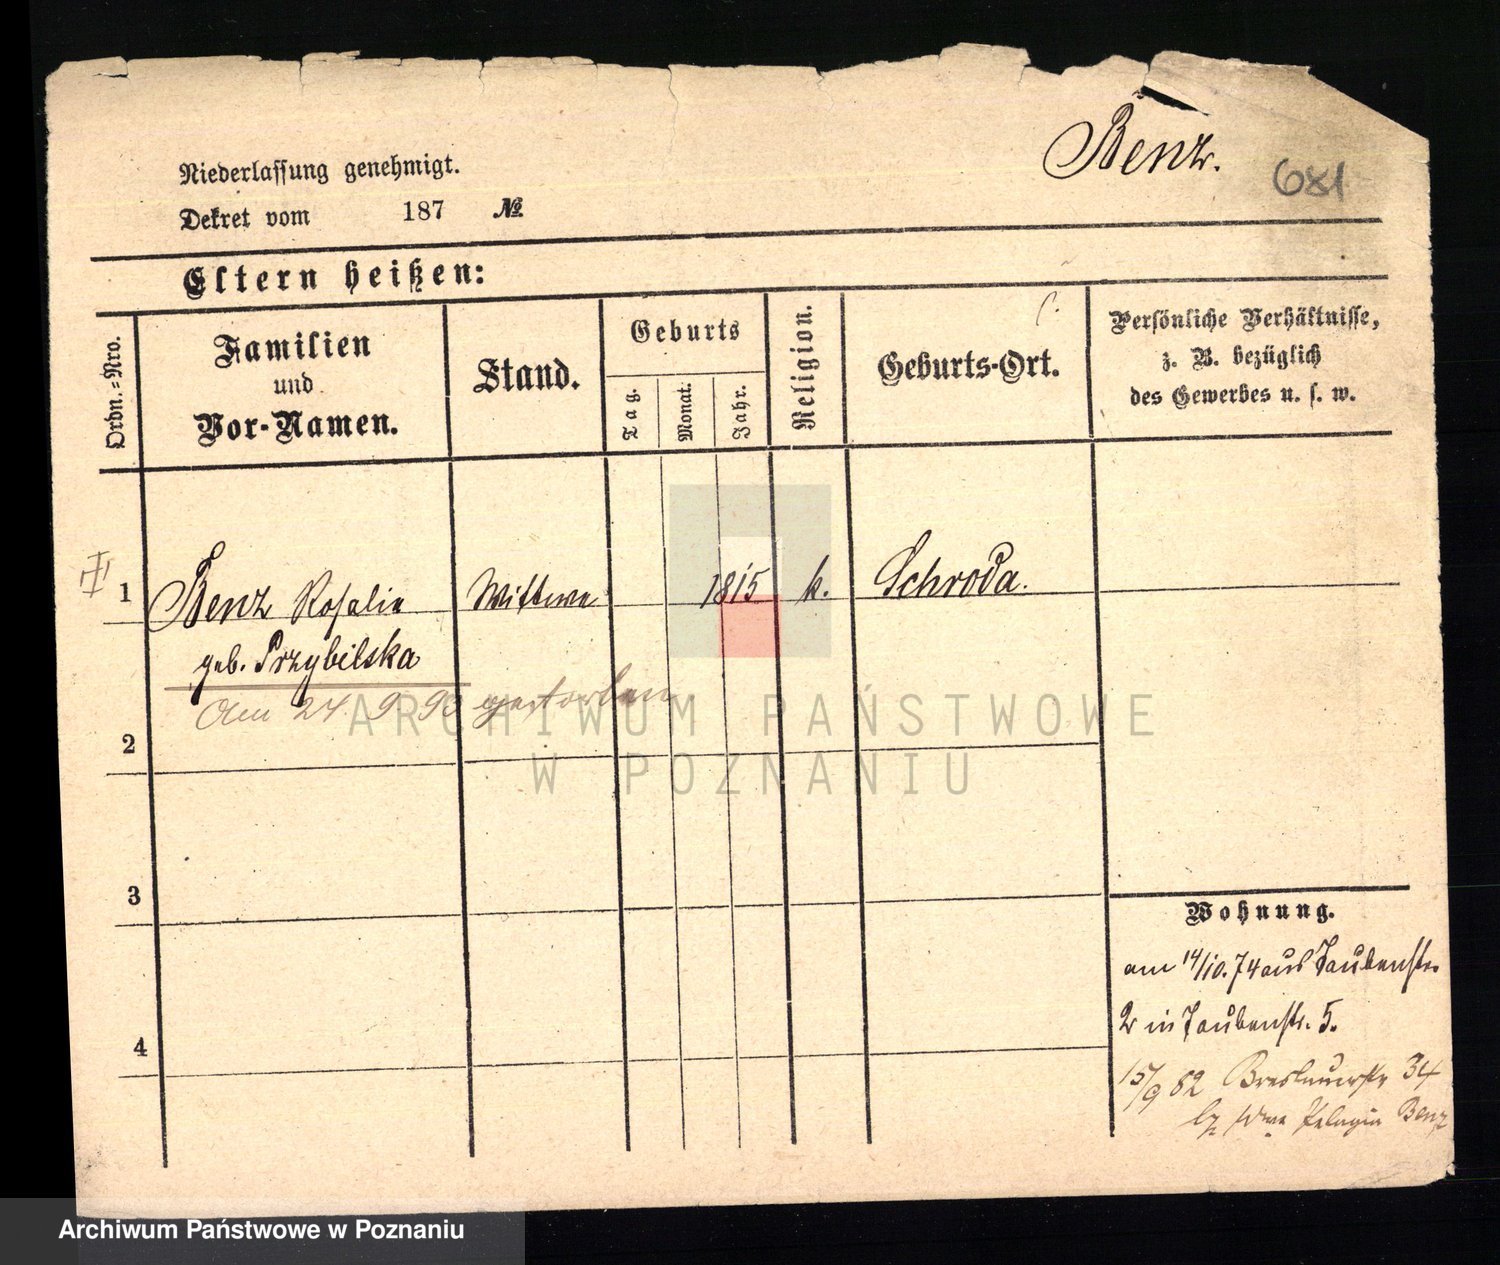 Benz.
681
Niederlassung genehmigt.
Dekret vom 187 №
Eltern heißen:
Ordn.=Nro.
Familien
und
Vor-Namen.
Stand.
Geburts
Tag.
Monat.
Jahr.
Religion.
Geburts-Ort.
Persönliche Verhältnisse,
z. B. bezüglich
des Gewerbes u. s. w.
1 Benz Rosalie Wittwe 1815 k. Schroda.
geb. Przybilska
Am 24. 9. 93 gestorben
2
3
4
Wohnung.
am 14/10. 74 aus Taubenstr.
2 in Taubenstr. 5.
15/9 82 Breslauerstr 34
Wwe Pelagia Benz
ARCHIWUM PAŃSTWOWE
W POZNANIU
Archiwum Państwowe w Poznaniu